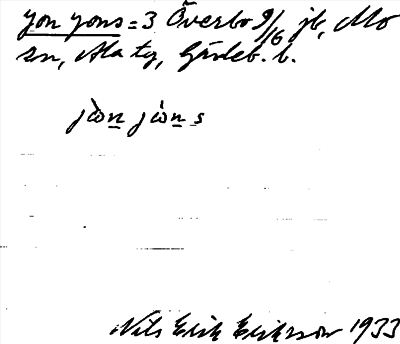 Jon Jons = 3 Överbo 9/16 jb, Mo
sn, Ala tg, Gävleb. l.
jòn jòn s
Nils Erik Eriksson 1933